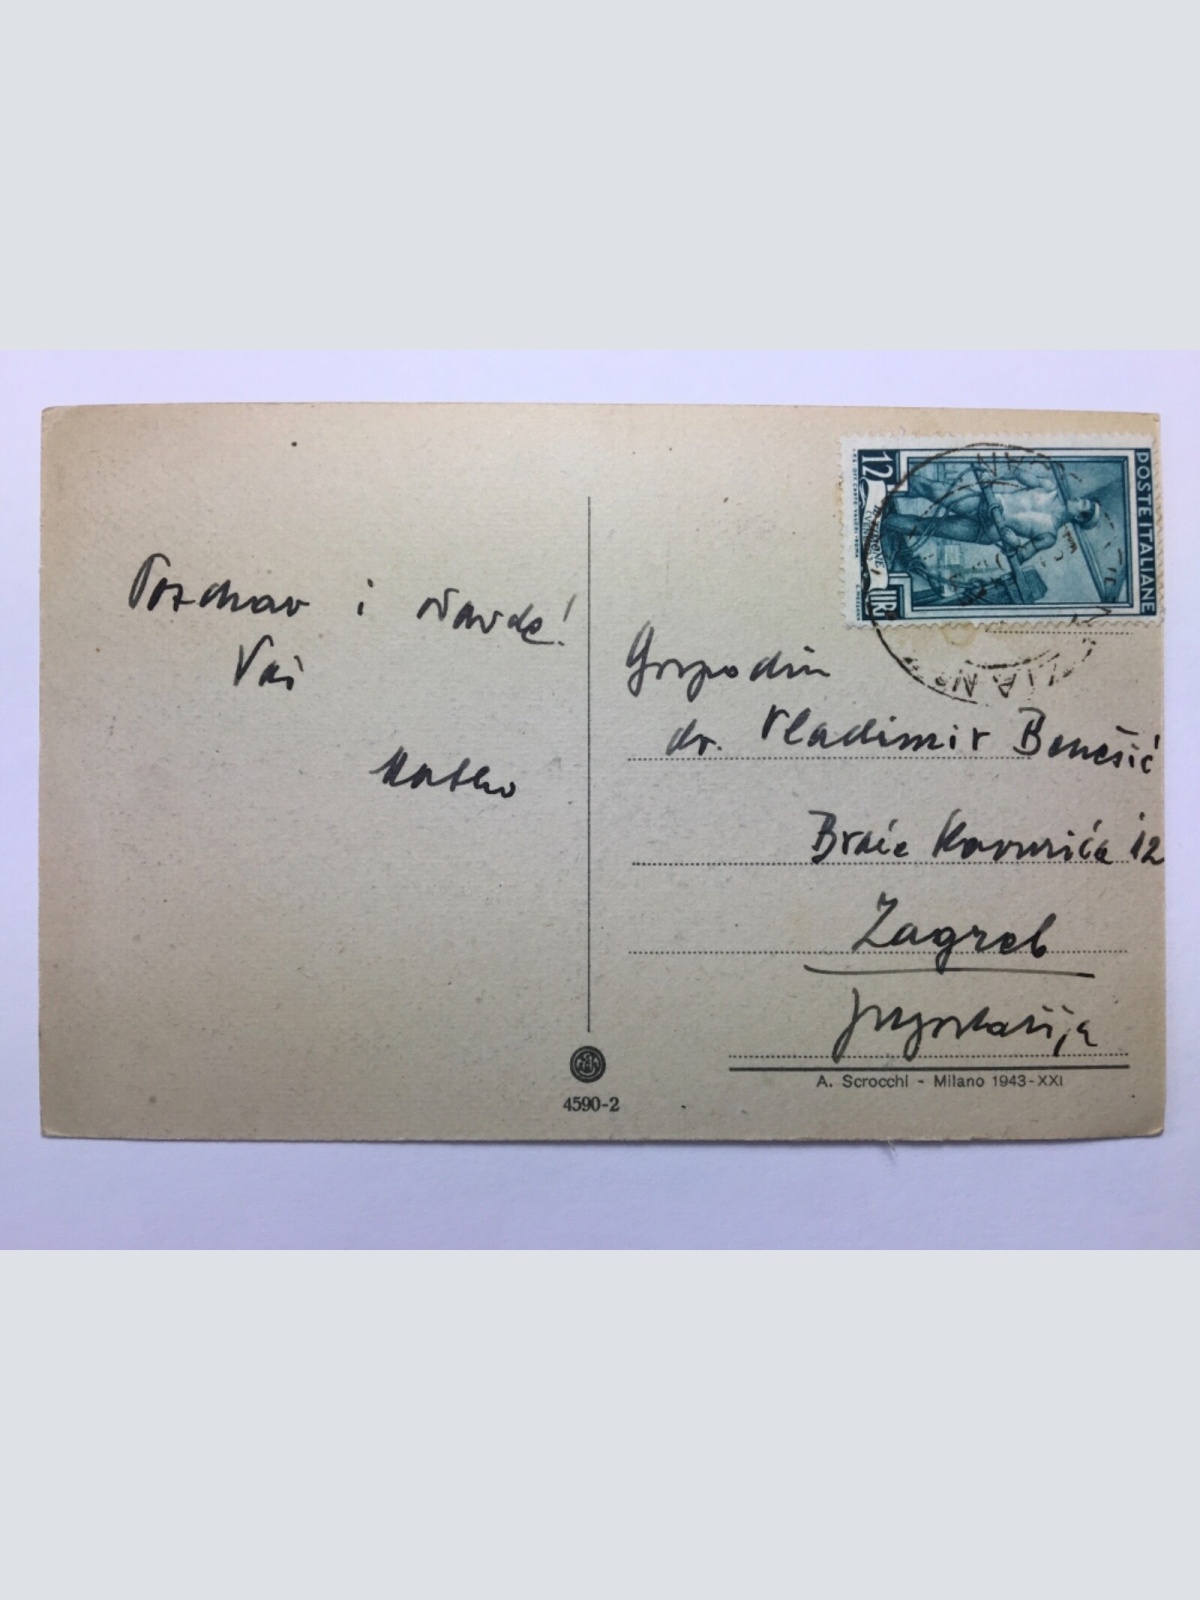 Pozdrav i ovavde!
Vaš
Matko
POSTE ITALIANE
12
LIRE
Gospodin
dr. Vladimir Benešić
Braće Kavurića 12
Zagreb
Jugoslavija
A. Scrocchi - Milano 1943-XXI
4590-2